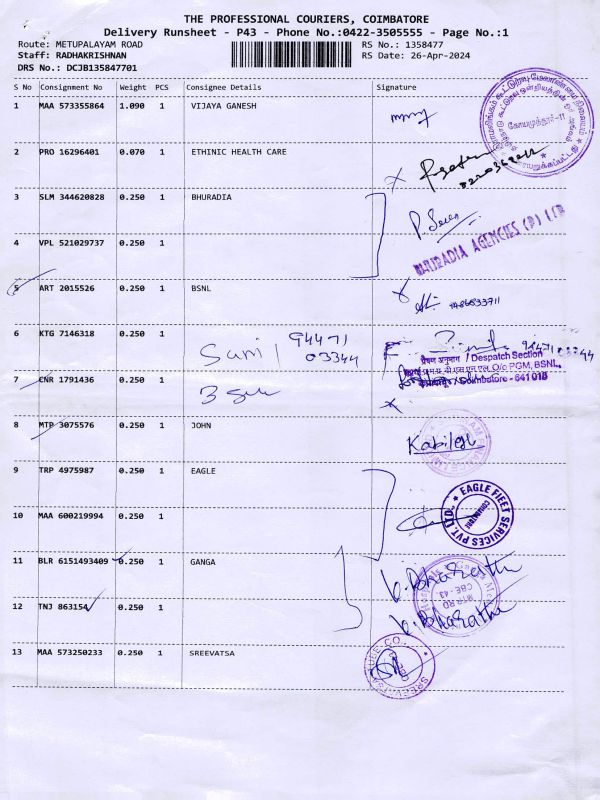 THE PROFESSIONAL COURIERS, COIMBATORE
Delivery Runsheet - P43 - Phone No.:0422-3505555 - Page No.:1
Route: METUPALAYAM ROAD RS No.: 1358477
Staff: RADHAKRISHNAN RS Date: 26-Apr-2024
DRS No.: DCJB135847701
S No Consignment No Weight PCS Consignee Details Signature
1 MAA 573355864 1.090 1 VIJAYA GANESH
கோயமுத்தூர்-11
2 PRO 16296401 0.070 1 ETHINIC HEALTH CARE
3 SLM 344620828 0.250 1 BHURADIA
BHURADIA AGENCIES (P) LTD
4 VPL 521029737 0.250 1
5 ART 2015526 0.250 1 BSNL
6 KTG 7146318 0.250 1
94471
03344
प्रेषण अनुभाग / Despatch Section
O/o PGM, BSNL,
Coimbatore - 641 018
7 CNR 1791436 0.250 1
8 MTP 3075576 0.250 1 JOHN
Kabilesh
9 TRP 4975987 0.250 1 EAGLE
EAGLE FLEET SERVICES PVT. LTD.
COIMBATORE
10 MAA 600219994 0.250 1
11 BLR 6151493409 0.250 1 GANGA
V. Bharathi
MTR RD
CBE - 43.
12 TNJ 863154 0.250 1
V. Bharathi
13 MAA 573250233 0.250 1 SREEVATSA
SREEVATSA TUBE CO.,